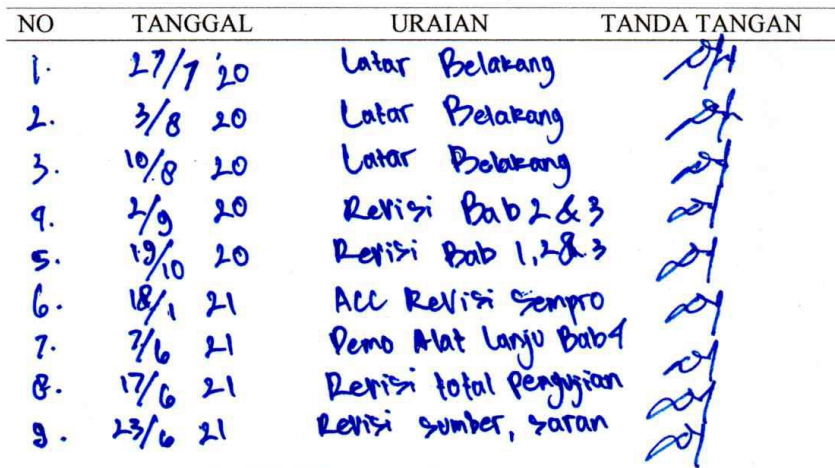 NO TANGGAL URAIAN TANDA TANGAN
1. 27/7 '20 Latar Belakang
2. 3/8 20 Latar Belakang
3. 10/8 20 Latar Belakang
4. 2/9 20 Revisi Bab 2 & 3
5. 19/10 20 Revisi Bab 1,2 & 3
6. 18/1 21 ACC Revisi Sempro
7. 7/6 21 Demo Alat Lanju Bab4
8. 17/6 21 Revisi total Pengujian
9. 23/6 21 Revisi sumber, saran